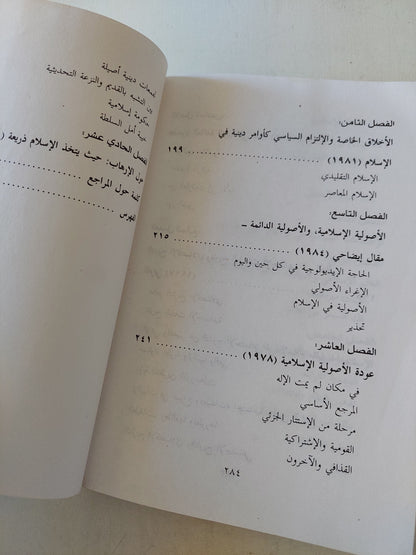 الفصل الثامن:
الأخلاق الخاصة والإلتزام السياسي كأوامر دينية في
الإسلام (١٩٨١) ............ ١٩٩
الإسلام التقليدي
الإسلام المعاصر
الفصل التاسع:
الأصولية الإسلامية، والأصولية الدائمة ـ
مقال إيضاحي (١٩٨٤) ............ ٢١٥
الحاجة الإيديولوجية في كل حين واليوم
الإغراء الأصولي
الأصولية في الإسلام
تحذير
الفصل العاشر:
عودة الأصولية الإسلامية (١٩٧٨) ............ ٢٤١
في مكان لم يمت الإله
المرجع الأساسي
مرحلة من الإستتار الجزئي
القومية والإشتراكية
القذافي والآخرون
٢٨٤
مجتمعات دينية أصيلة
بين التشبه بالقديم والنزعة التحديثية
حكومة إسلامية
خيبة أمل السلطة
الفصل الحادي عشر:
حول الإرهاب: حيث يتخذ الإسلام ذريعة
كلمة حول المراجع ............
الفهرس ............